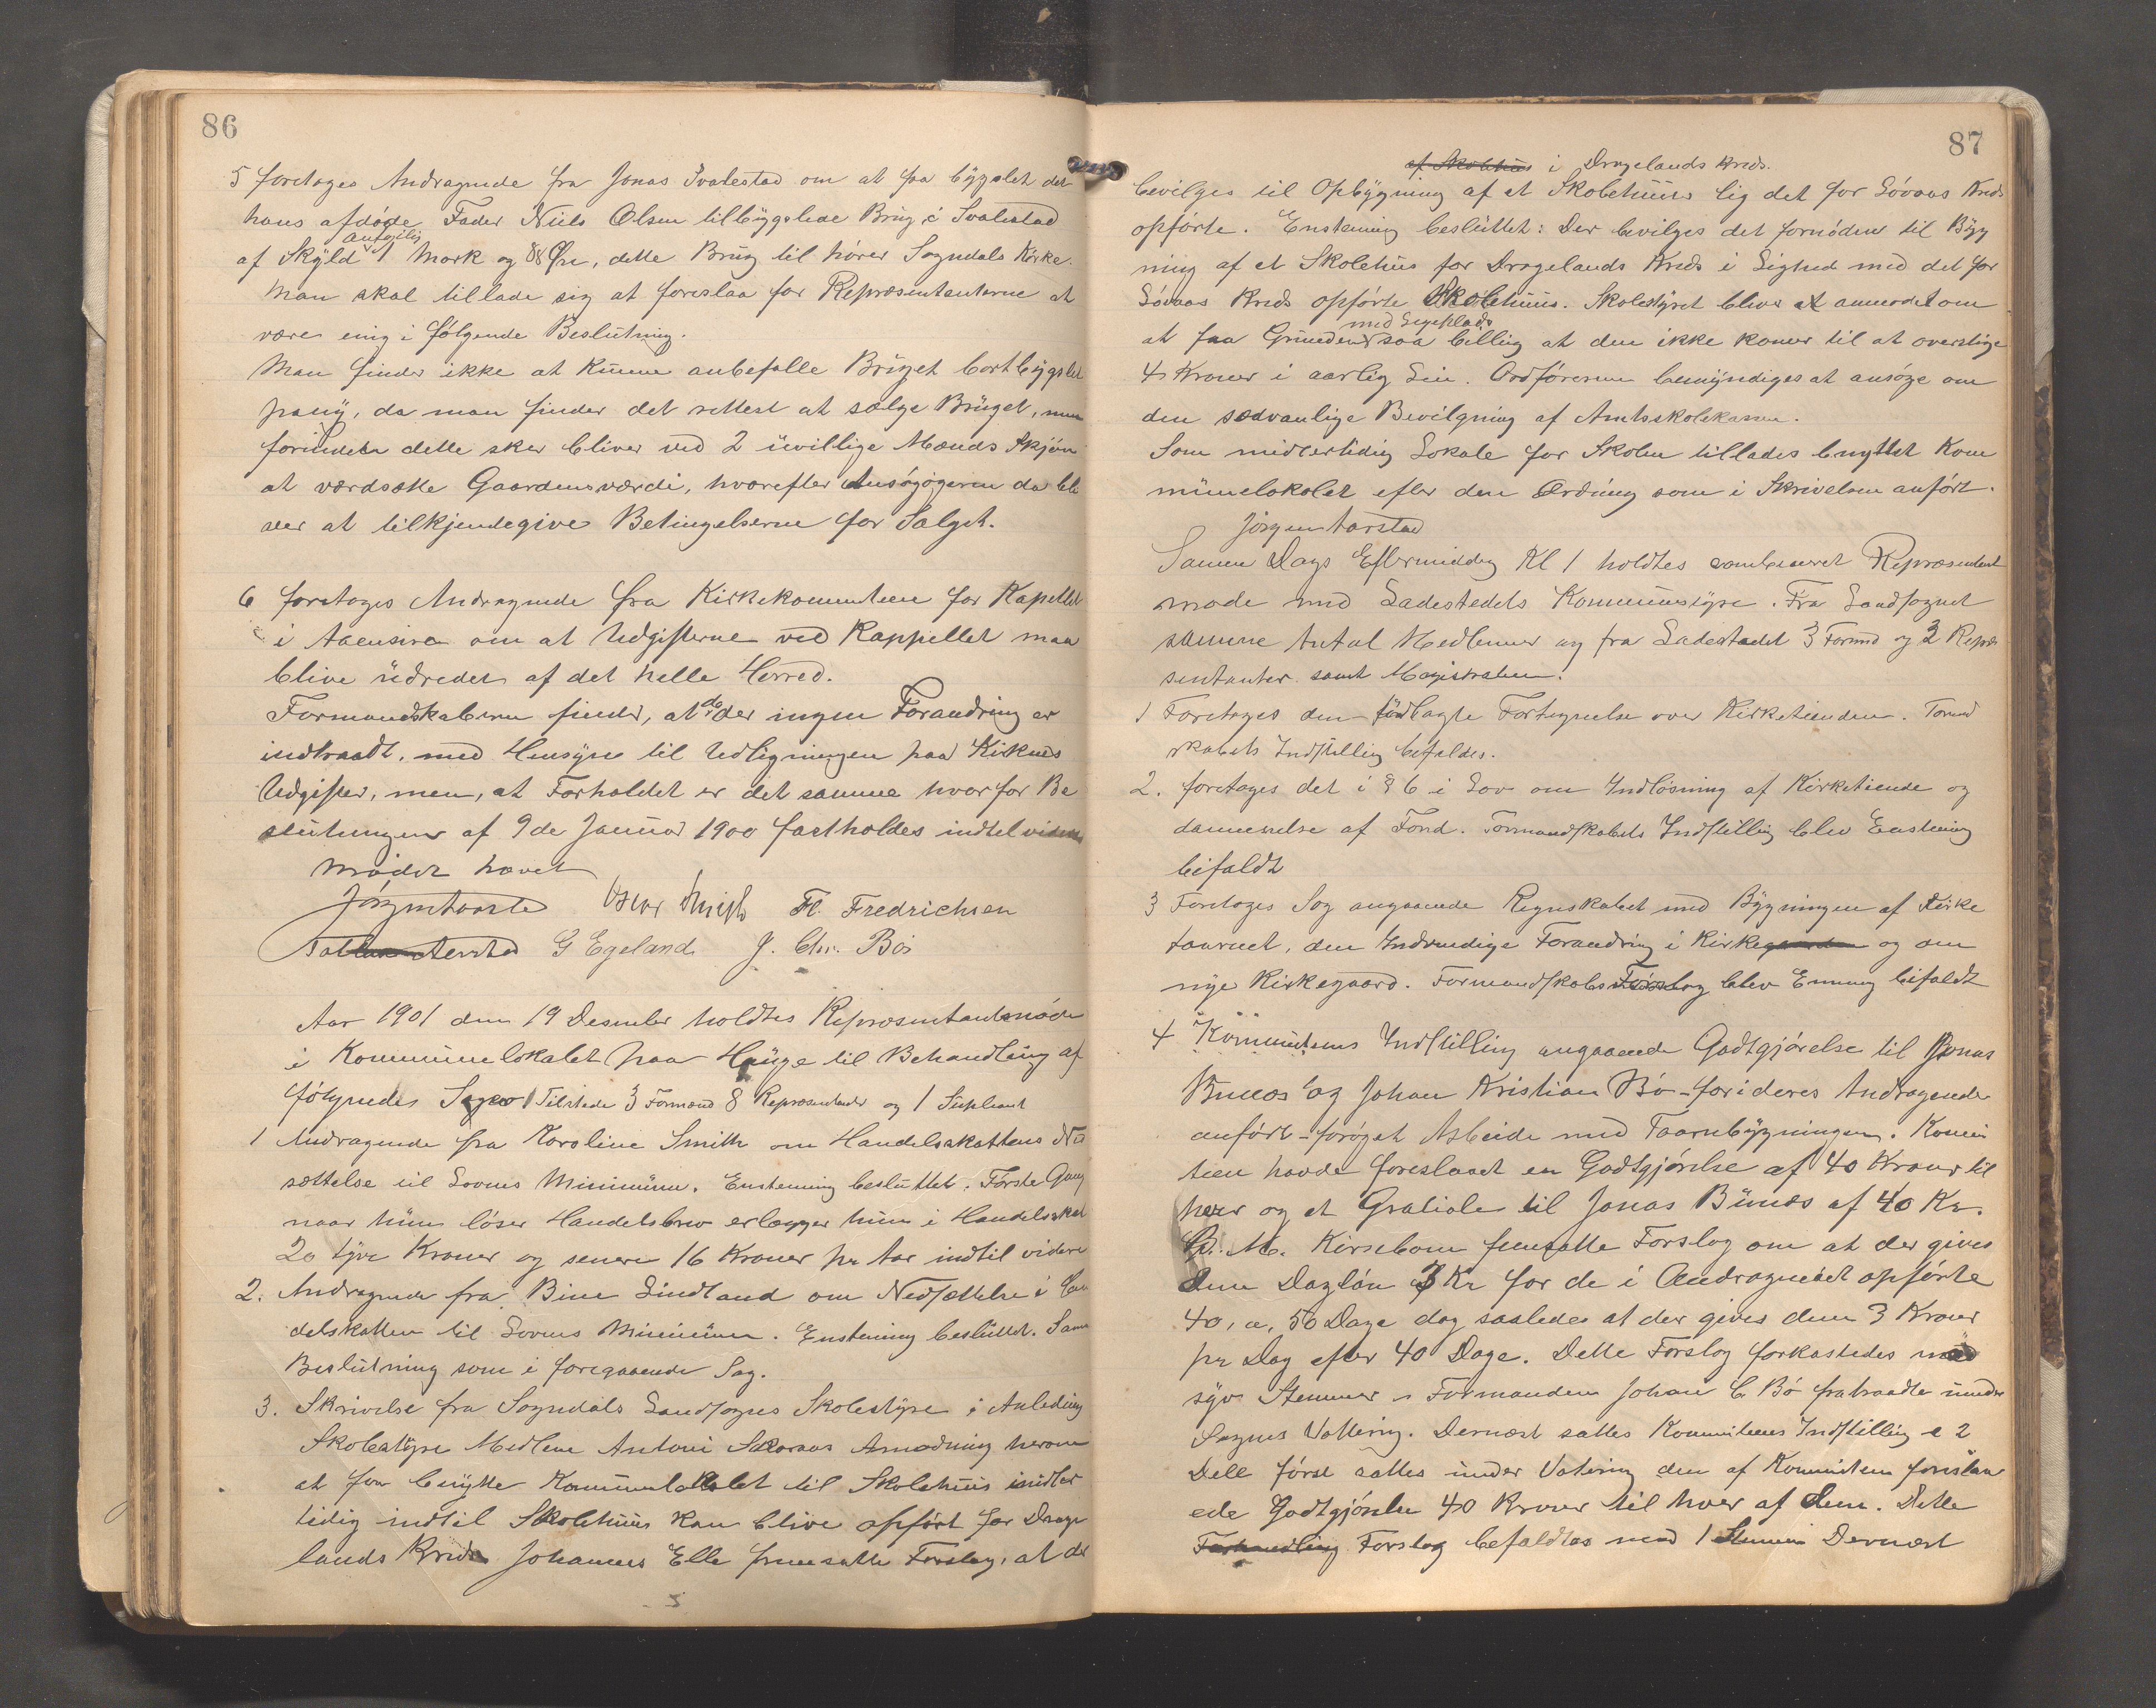 86
5 foretoges Andragende fra Jonas Svalestad om at faa bygslet det
hans afdøde Fader Niels Olsen tilbygslede Brug i Svalestad
antagelig
af Skyld 1 Mark og 88 Øre, dette Brug til hører Sogndals Kirke.
Man skal tillade sig at foreslaa for Repræsentanterne at
være enig i følgende Beslutning.
Man finder ikke at kunne anbefalle Bruget bortbygslet
paany, da man finder det rettest at sælge Bruget, men
forinden dette sker bliver ved 2 uvillige Mænds Skjøn
at værdsætte Gaardensværdi, hvorefter Ansøgøgeren da ble
ver at tilkjendegive Betingelserne for Salget.
6 foretoges Andragende fra Kirkekommiteen for Kapellet
i Aaensire om at Udgifterne ved Kappellet maa
blive udredet af det helle Herred.
Formandskaberne finder, at der ingen Forandring er
indtraadt, med Hensyn til Udligningen paa Kirkens
Udgifter, men, at Forholdet er det samme hvorfor Be
slutningen af 9de Januar 1900 fastholdes indtil videre
Mødet hævet
Jørgen Aarstad Oscar Smith Fr. Fredrichsen
G Egeland J. Chr. Bö
Aar 1901 den 19 Desember holdtes Repræsentantsmøde
i Kommunelokalet paa Hauge til Behandling af
følgendes Sager Tilstede 3 Formænd 8 Repræsentanter og 1 Supleant
1 Andragende fra Karoline Smith om Handelsskattens Ned
sættelse til Lovens Minimum. Enstemmig besluttet. Første Gang
naar hun løser Handelsbrev erlægger hun i Handelsskat
20 tyve Kroner og senere 16 Kroner pr Aar indtil videre
2. Andragende fra Bine Lindland om Nedsættelse i Han
delskatten til Lovens Minimum. Enstemmig besluttet. Samme
Beslutning som i foregaaende Sag.
3. Skrivelse fra Sogndals Landsogns Skolestyre i Anledning
Skolestyre Medlem Antoni Anmodning herom
at faa benytte Kommunelokalet til Skolehuus midler
tidig indtil Skolehuus kan blive opført for Drage
lands Kreds Johannes Elle fremsatte Forslag, at der
87
af Skolehuus i Dragelands Kreds.
bevilges til Opbygning af et Skolehuus lig det for Løvaas Kreds
opførte. Enstemmig besluttet: Der bevilges det fornødne til Byg
ning af et Skolehus for Dragelands Kreds i Lighed med det for
Løvaas Kreds opførte Skolehuus. Skolestyret bliver at anmodet om
med Legeplads
at faa Grunden saa billig at den ikke kommer til at overstige
4 Kroner i aarlig Leie. Ordføreren bemyndiges at ansøge om
den sædvanlige Bevilgning af Amtsskolekassen.
Som midlertidig Lokale for Skolen tillades benyttet Kom
munelokalet efter den Ordning som i Skrivelsen anført.
Jørgen Aarstad
Samme Dags Eftermiddag Kl 1 holdtes combineret Repræsentant
møde med Ladestedets Kommunestyre. Fra Landsognet
samme Antal Medlemmer og fra Ladestedet 3 Formænd og 3 Repræ
sentanter samt Magistraten.
1 Foretoges den fremlagte Fortegnelse over Kirketienden. Formand
skabets Indstilling bifaldes.
2. foretoges det i § 6 i Lov om Indløsning af Kirketiende og
dannenelse af Fond. Formandskabets Indstilling blev Enstemmig
bifaldt
3 Foretoges Sag angaaende Regnskabet med Bygningen af Kirke
taarnet, den Indvendige Forandring i Kirkegaarden og om
nye Kirkegaard. Formandskabs Forslag blev Enmmig bifaldt
4 Kommiteens Indstilling angaaende Godtgjørelse til Jonas
Bunæs og Johan Kristian Bö - for i deres Andragende
anført - forøget Arbeide med Taarnbygningen. Kommi
teen havde foreslaaet en Godtgjørelse af 40 Kroner til
hver og et Gratiale til Jonas Bunæs af 40 Kr.
M. Kirsebom fremsatte Forslag om at der gives
dem Dagløn 3 Kr for de i Andragendet opførte
40, a, 50 Dage dog saaledes at der gives dem 3 Kroner
pr Dag efter 40 Dage. Dette Forslag forkastedes mod
syv Stemmer. Formanden Johan C Bö fratraadte under
Sagens Vottering. Dernæst sattes Kommiteens Indstilling i 2
Dele først sattes under Votering den af Kommiteen foreslaa
ede Godtgjørelse 40 Kroner til hver af dem. Dette
Forhandling Forslag befaldtes mod 1 Stemme Dernæst